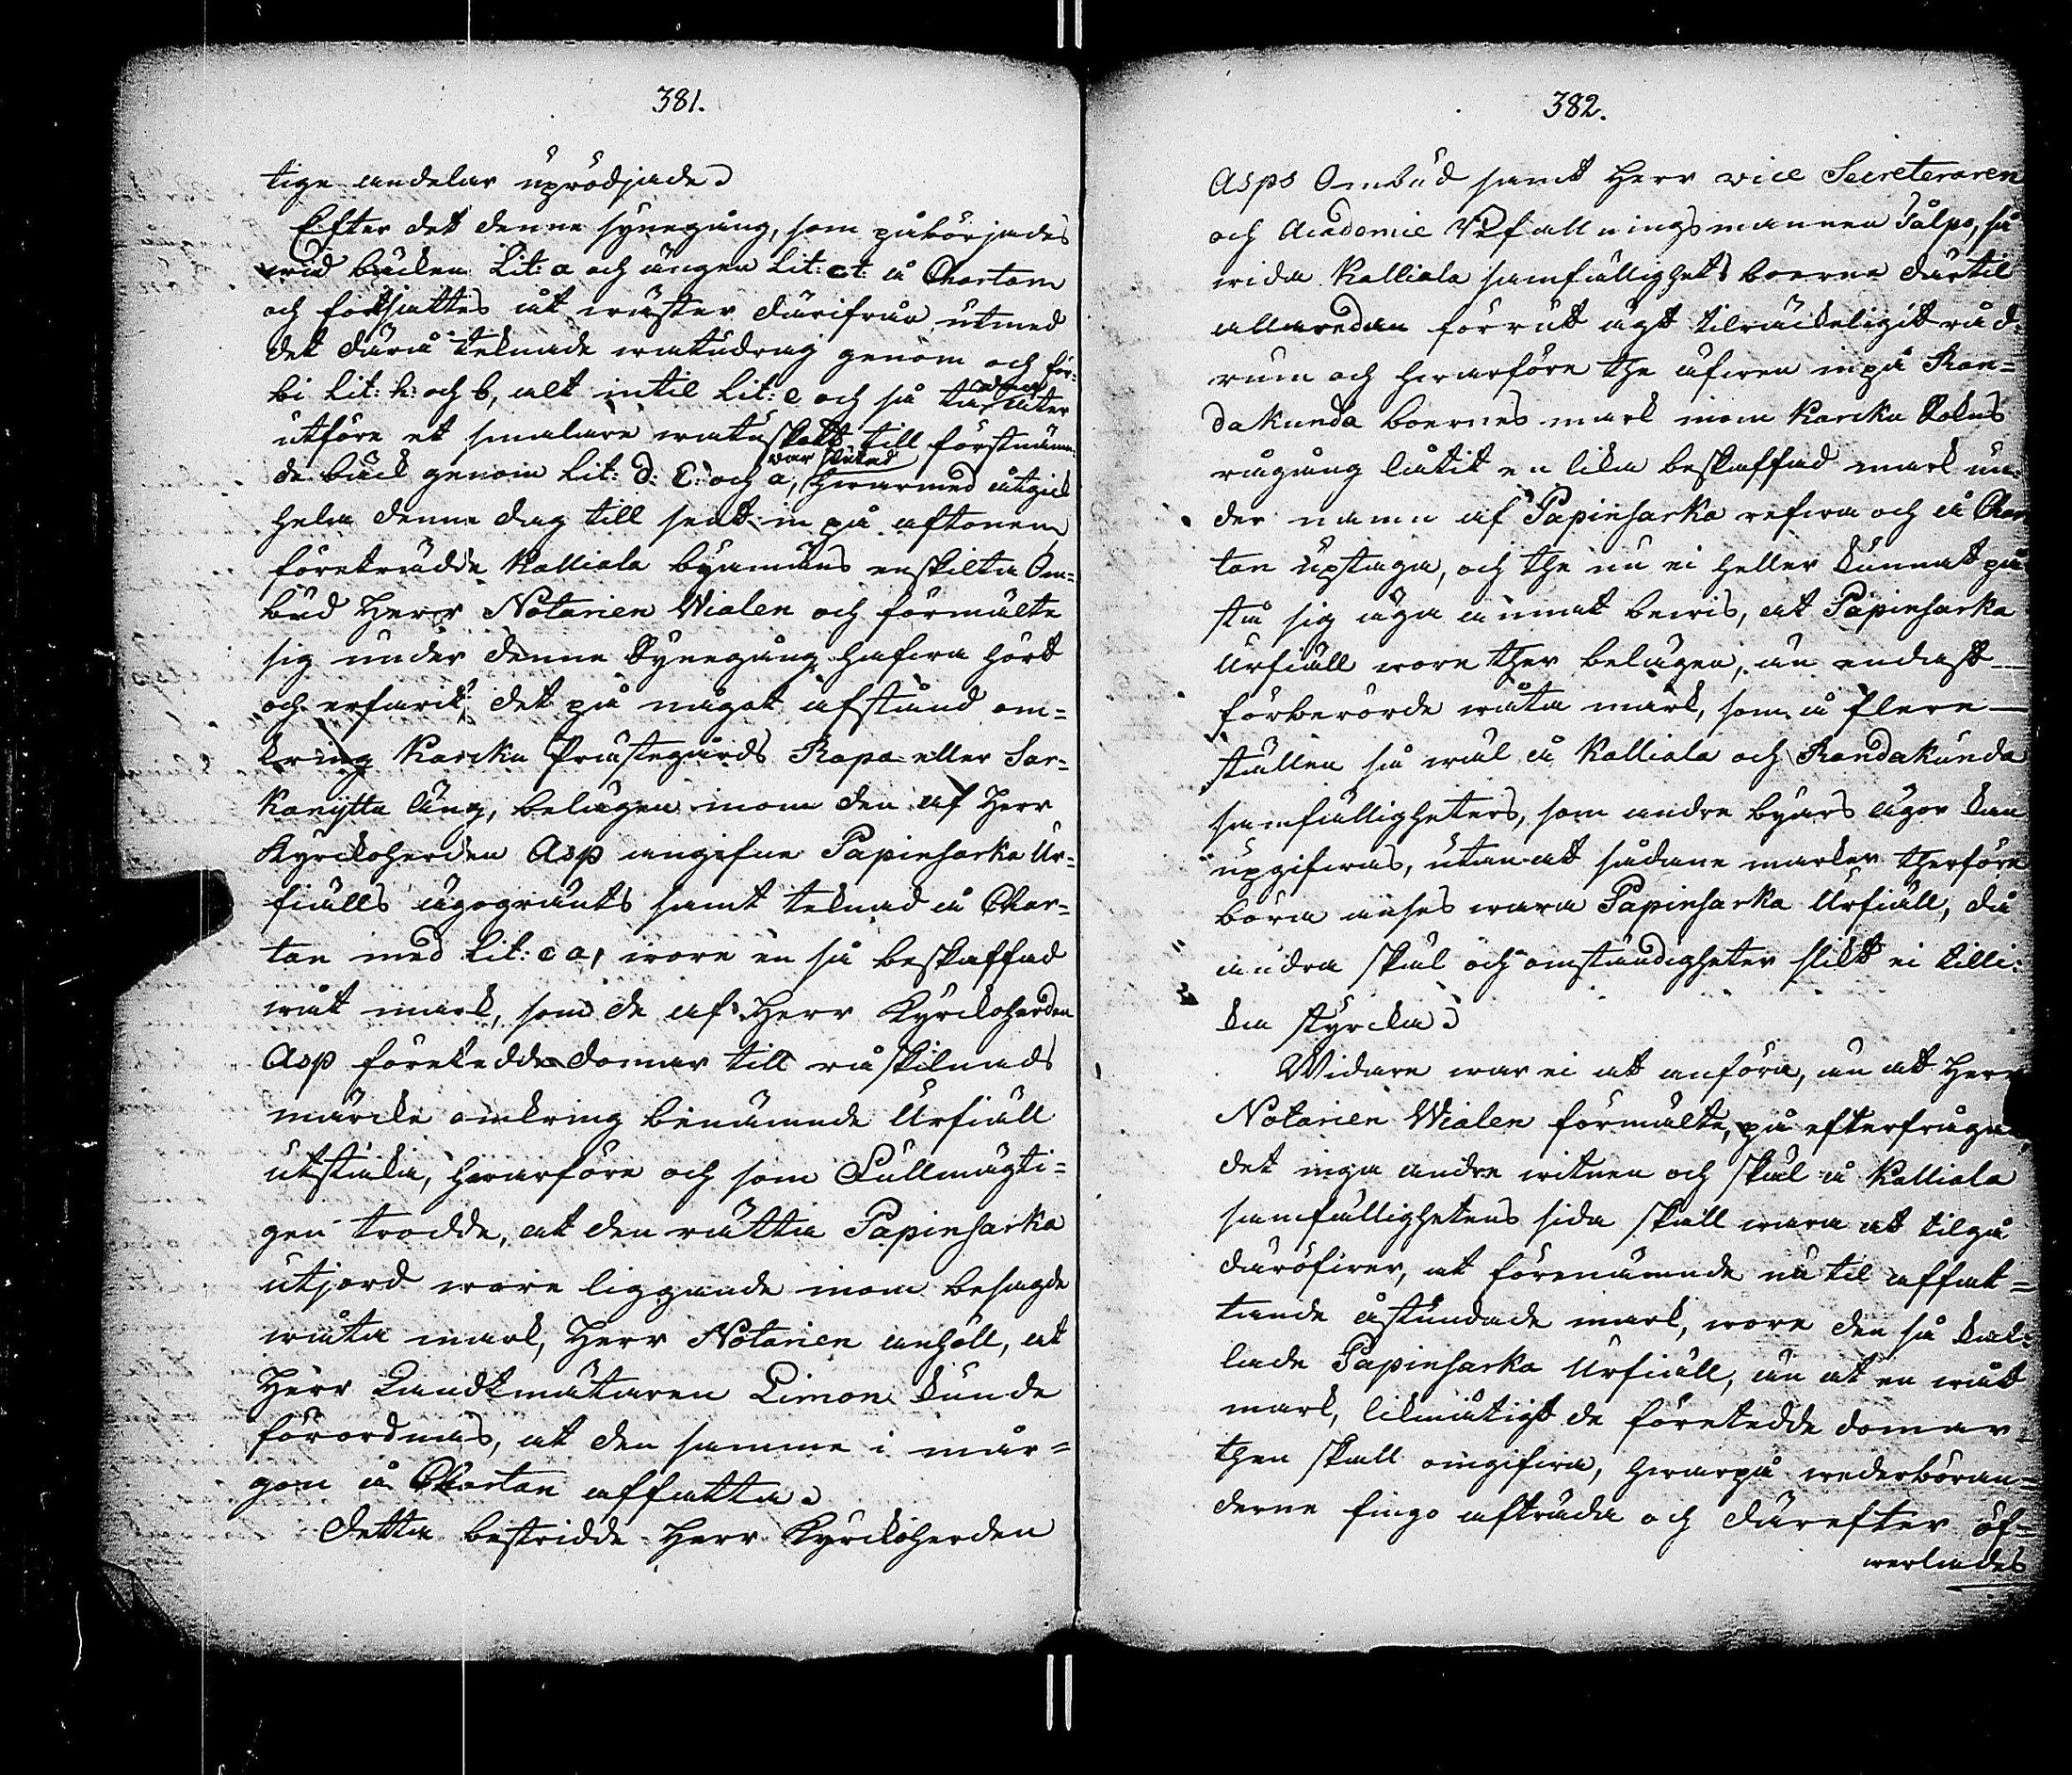 381.
tige andelar uprödjade.
Efter det denne synegång, som påbörjades
wid bäcken Lit: a och ängen Lit: ct: å Chartan
och fortsattes åt wäster därifrån utmed
det därå teknade watudrag genom och för-
bi Lit: h: och b, alt intil Lit: e och så
utföre et smalare watu till förstnäm-
de bäck genom Lit: d: C: och a, var slutad hwarmed åtgick
hela denne dag till sent in på aftonen
företrädde Kalliala byamäns enskilta Om-
bud Herr Notarien Wialen och förmälte
sig under denne Synegång hafwa hört
och erfarit, det på något afstånd om-
kring Karcku Prästegårds Rapa eller Sar-
kanytta äng, belägen inom den af Herr
Kyrckoherden Asp angifne Papinsarka Ur-
fiälls ägogränts samt teknad å Char-
tan med Lit: c a, wore en så beskaffad
wåt mark, som de af Herr Kyrckoherden
Asp företedde domar till råskilnads
märcke omkring benämnde Urfiäll
utstaka, hwarföre och som Fullmägti-
gen trodde, at den rätta Papinsarka
utjord wore liggande inom besagde
wåta mark, Herr Notarien anhöll, at
Herr Landtmätaren Limon kunde
förordnas, at den samma i mår-
gon å Chartan affatta.
Detta bestridde Herr Kyrckoherden
382.
Asps Ombud samt Herr vice Secreteraren
och Academie Befallningsmannen Pålpo, så
wida Kalliala samfällighets boerne därtil
allaredan förrut ägt tilräckeligit råd-
rum och hwarföre the äfwen inpå Ran-
dakunda boernes mark inom Karcku Bolens
rågång låtit en lika beskaffad mark un-
der namn af Papinsarka refwa och å Char
tan uptaga, och the nu ei heller kunnat på-
stå sig äga annat bewis, at Papinsarka
Urfiäll wore ther belägen, än endast
förberörde wåta mark, som å flere
ställen så wäl å Kalliala och Randakunda
samfälligheters, som andre byars ägor kan
upgifwas, utan at sådane marker therföre
böra anses wara Papinsarka Urfiäll, då
andra skäl och omständigheter slikt ei tilli-
ka styrcka.
Widare war ei at anföra, än at Herr
Notarien Wialen förmälte, på efterfrågan,
det inga andre witnen och skäl å Kalliala
samfällighetens sida skall wara at tilgå
däröfwer, at förenämnde nu til affat-
tande åstundade mark, wore den så kal-
lade Papinsarka Urfiäll, än at en wåt
mark, likmätigt de företedde domar,
then skall omgifwa, hwarpå wederböran-
derne fingo afträda och därefter öf-
werlades